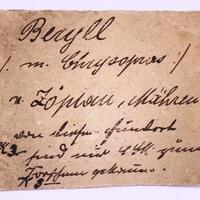 Beryll
/. m. Chrysopras :/
v. Zöptau, Mähren
von diesem Fundort
sind nur 4 Stk zum
Vorschein gekomm.